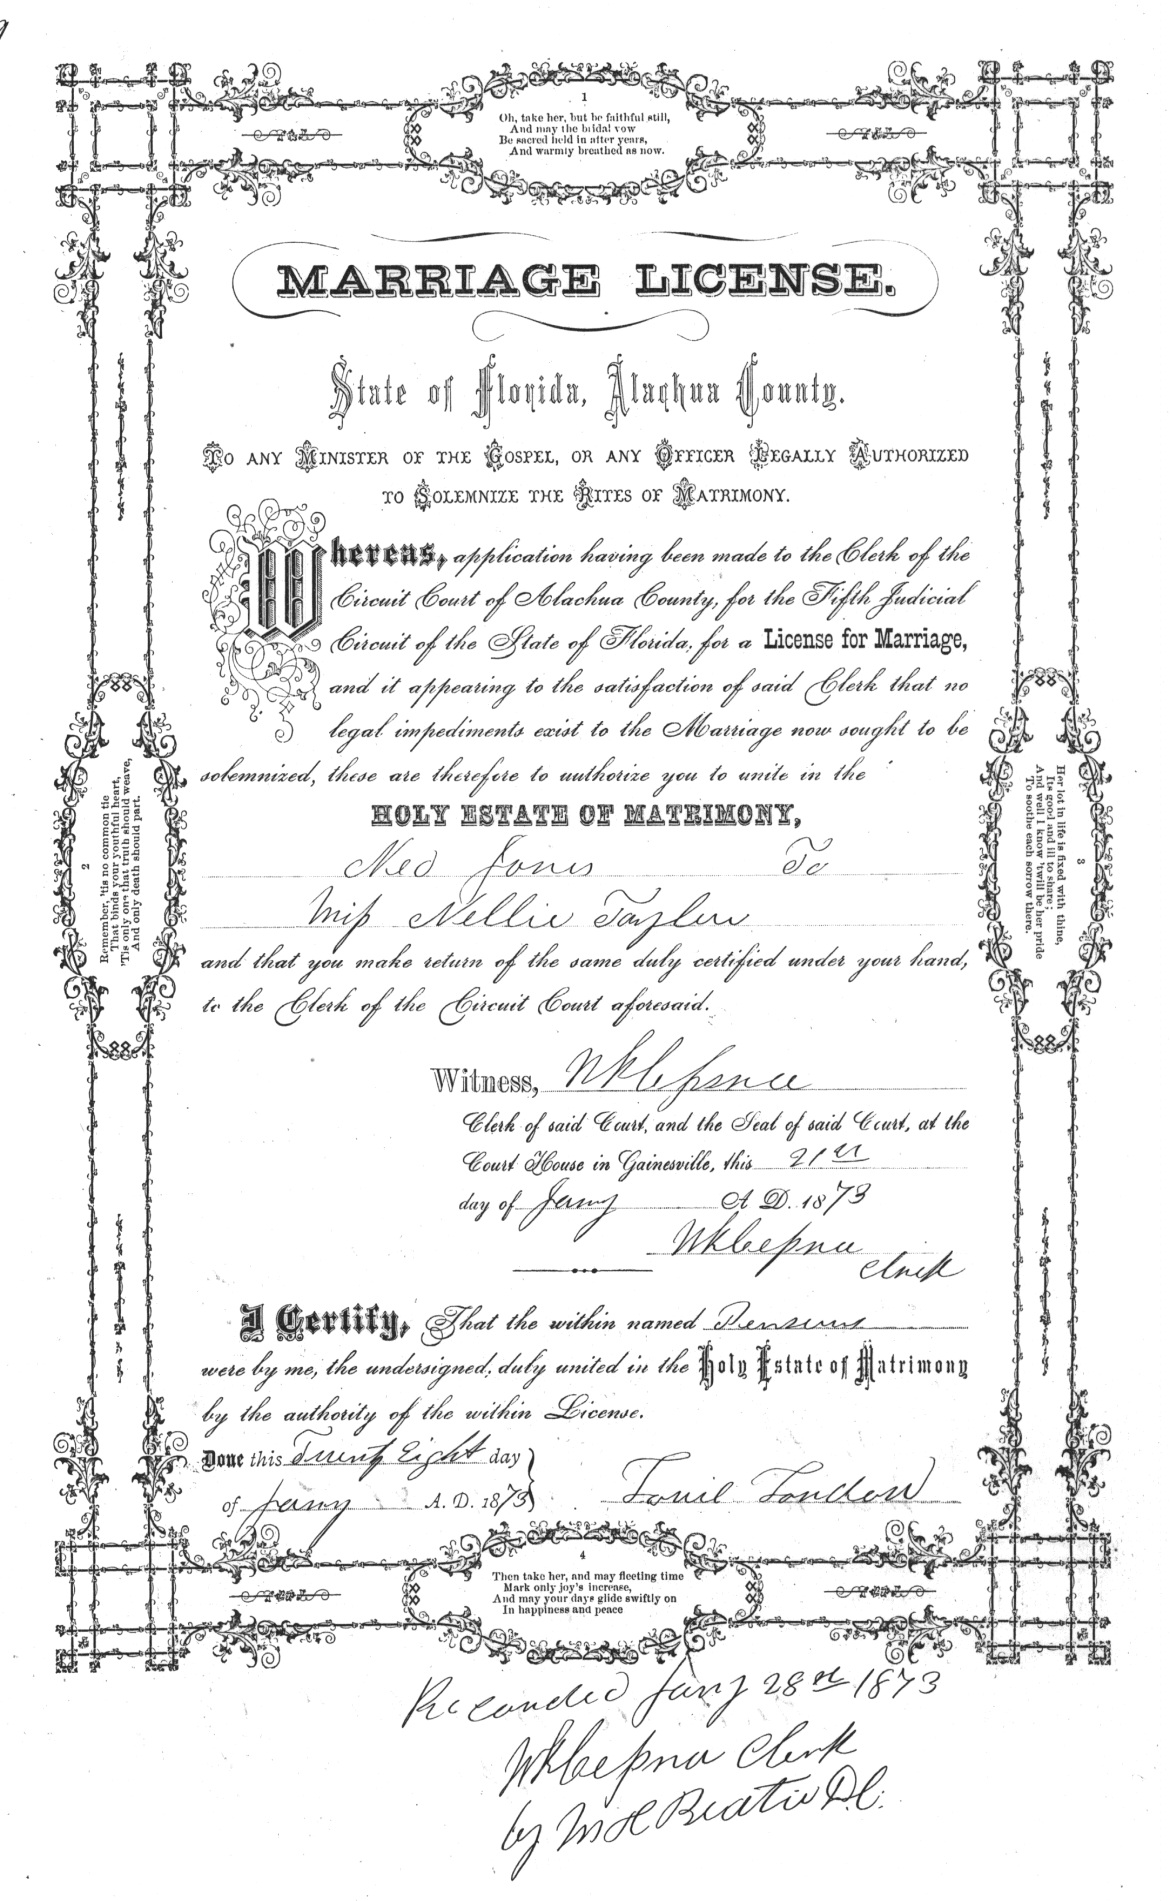 1
Oh, take her, but be faithful still,
And may the bridal vow
Be sacred held in after years,
And warmly breathed as now.
MARRIAGE LICENSE.
State of Florida, Alachua County.
TO ANY MINISTER OF THE GOSPEL, OR ANY OFFICER LEGALLY AUTHORIZED
TO SOLEMNIZE THE RITES OF MATRIMONY.
Whereas, application having been made to the Clerk of the
Circuit Court of Alachua County, for the Fifth Judicial
Circuit of the State of Florida, for a License for Marriage,
and it appearing to the satisfaction of said Clerk that no
legal impediments exist to the Marriage now sought to be
solemnized, these are therefore to authorize you to unite in the
HOLY ESTATE OF MATRIMONY,
Ned Jones To
Miss Nellie Taylor
and that you make return of the same duly certified under your hand,
to the Clerk of the Circuit Court aforesaid.
Witness,
Clerk of said Court, and the Seal of said Court, at the
Court House in Gainesville, this 21st
day of Jany A. D. 1873
Clerk
I Certify, That the within named Persons
were by me, the undersigned, duly united in the Holy Estate of Matrimony
by the authority of the within License.
Done this Twenty Eight day
of Jany A. D. 1873
2
Remember, 'tis no common tie
That binds your youthful heart,
'Tis only one that truth should weave,
And only death should part.
3
Her lot in life is fixed with thine,
Its good and ill to share;
And well I know 'twill be her pride
To soothe each sorrow there.
4
Then take her, and may fleeting time
Mark only joy's increase,
And may your days glide swiftly on
In happiness and peace
Recorded Jany 28st 1873
Clerk
by M H Beatie D.C.